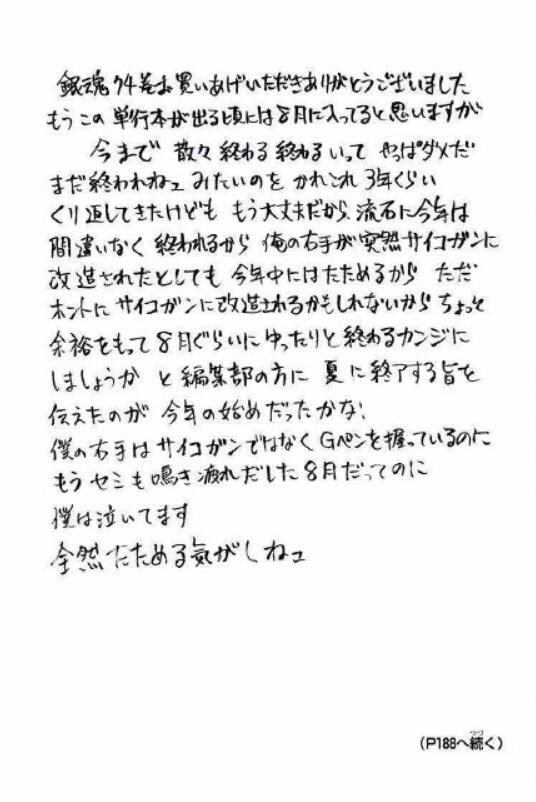 銀魂74巻お買いあげいただきありがとうございました
もうこの単行本が出る頃には8月に入ってると思いますが
今まで 散々終わる終わるいって やっぱダメだ
まだ終われねェ みたいのを かれこれ3年くらい
くり返してきたけども もう大丈夫だから、流石に今年は
間違いなく終われるから 俺の右手が突然サイコガンに
改造されたとしても 今年中にはたためるから ただ
ホントにサイコガンに改造されるかもしれないから ちょっと
余裕をもって8月ぐらいに ゆったりと終わるカンジに
しましょうか と編集部の方に 夏に終了する旨を
伝えたのが 今年の始めだったかな、
僕の右手はサイコガンではなくGペンを握っているのに
もう セミも鳴き疲れだした8月だってのに
僕は泣いてます
全然たためる気がしねェ
(P188へ続く)
つづ